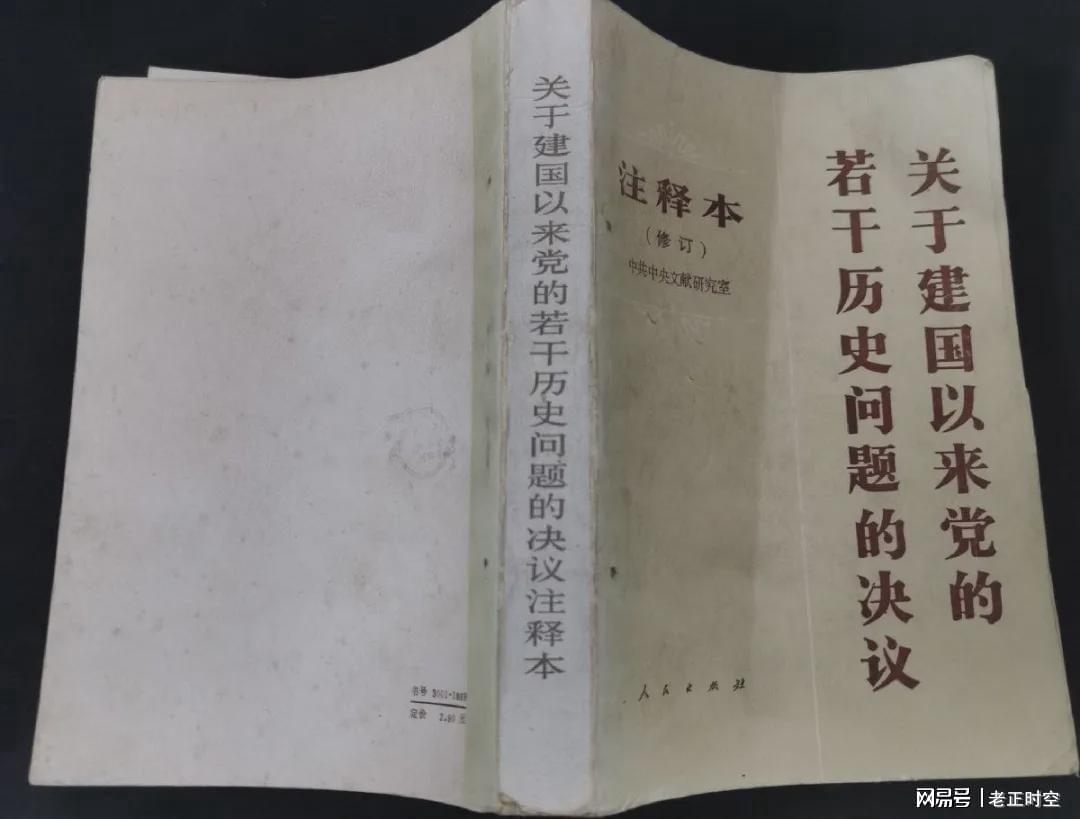 关于建国以来党的
若干历史问题的决议
注释本
（修订）
中共中央文献研究室
人民出版社
关于建国以来党的若干历史问题的决议注释本
书号
定价
网易号 | 老正时空